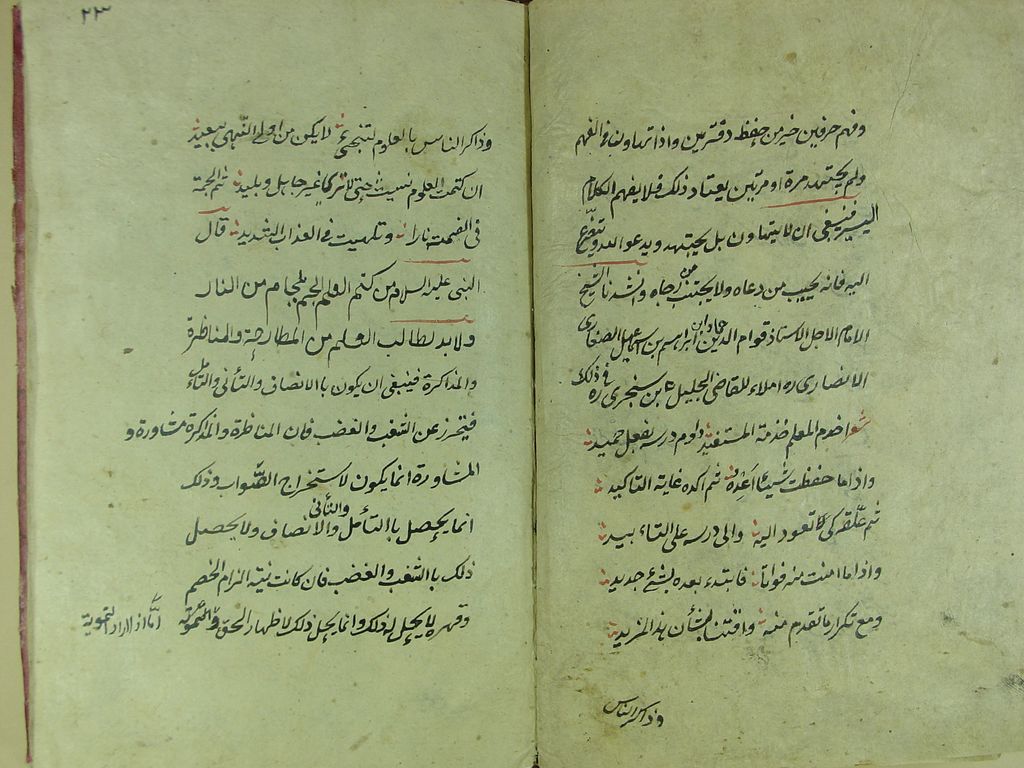 وفهم حرفين خير من حفظ دفترين واذا تهاون في الفهم
ولم يجتهد مرة او مرتين يعتاد ذلك فلا يفهم الكلام
اليسير فينبغي ان لا يتهاون بل يجتهد ويدعو الله ويتضرع
اليه فانه يجيب من دعاه ولا يخيب من رجاه وانشدنا الشيخ
الامام الاجل الاستاذ قوام الدين حماد ابن ابراهيم بن اسماعيل الصفاري
الانصاري ره املاء للقاضي الجليل بن سنجري ره في ذلك
شعر اخدم العلم خدمة المستفيد داوم درسه بفعل حميد
واذا ما حفظت شيئا اعده ثم اكده غاية التاكيد
ثم علقه كي تعود اليه والى درسه على التاءبيد
واذا ما امنت منه فواتا فابتدء بعده بشئ جديد
ومع تكرار ما تقدم منه واقتناء لشأن هذا المزيد
وذاكر الناس
٢٣
وذاكر الناس بالعلوم لتحيى لا يكن من اولي النهى ببعيد
ان كتمت العلوم نسيت حتى لا ترى غير جاهل وبليد
ثم الجمت في القيمة نارا وتلهبت في العذاب الشديد قال
النبي عليه السلام من كتم العلم الجم بلجام من النار
ولا بد لطالب العلم من المطارحة والمناظرة
والمذاكرة فينبغي ان يكون باالانصاف والتأني والتأمل
فيتحرز عن الشغب والغضب فان المناظرة والمذاكرة مشاورة و
المشاورة انما يكون لاستخراج الصواب وذلك
انما يحصل باالتأمل والتأني والانصاف ولا يحصل
ذلك باالشغب والغضب فان كانت نيته الزام الخصم
وقهره لا يحل له ذلك وانما يحل ذلك لاظهار الحق والتموية